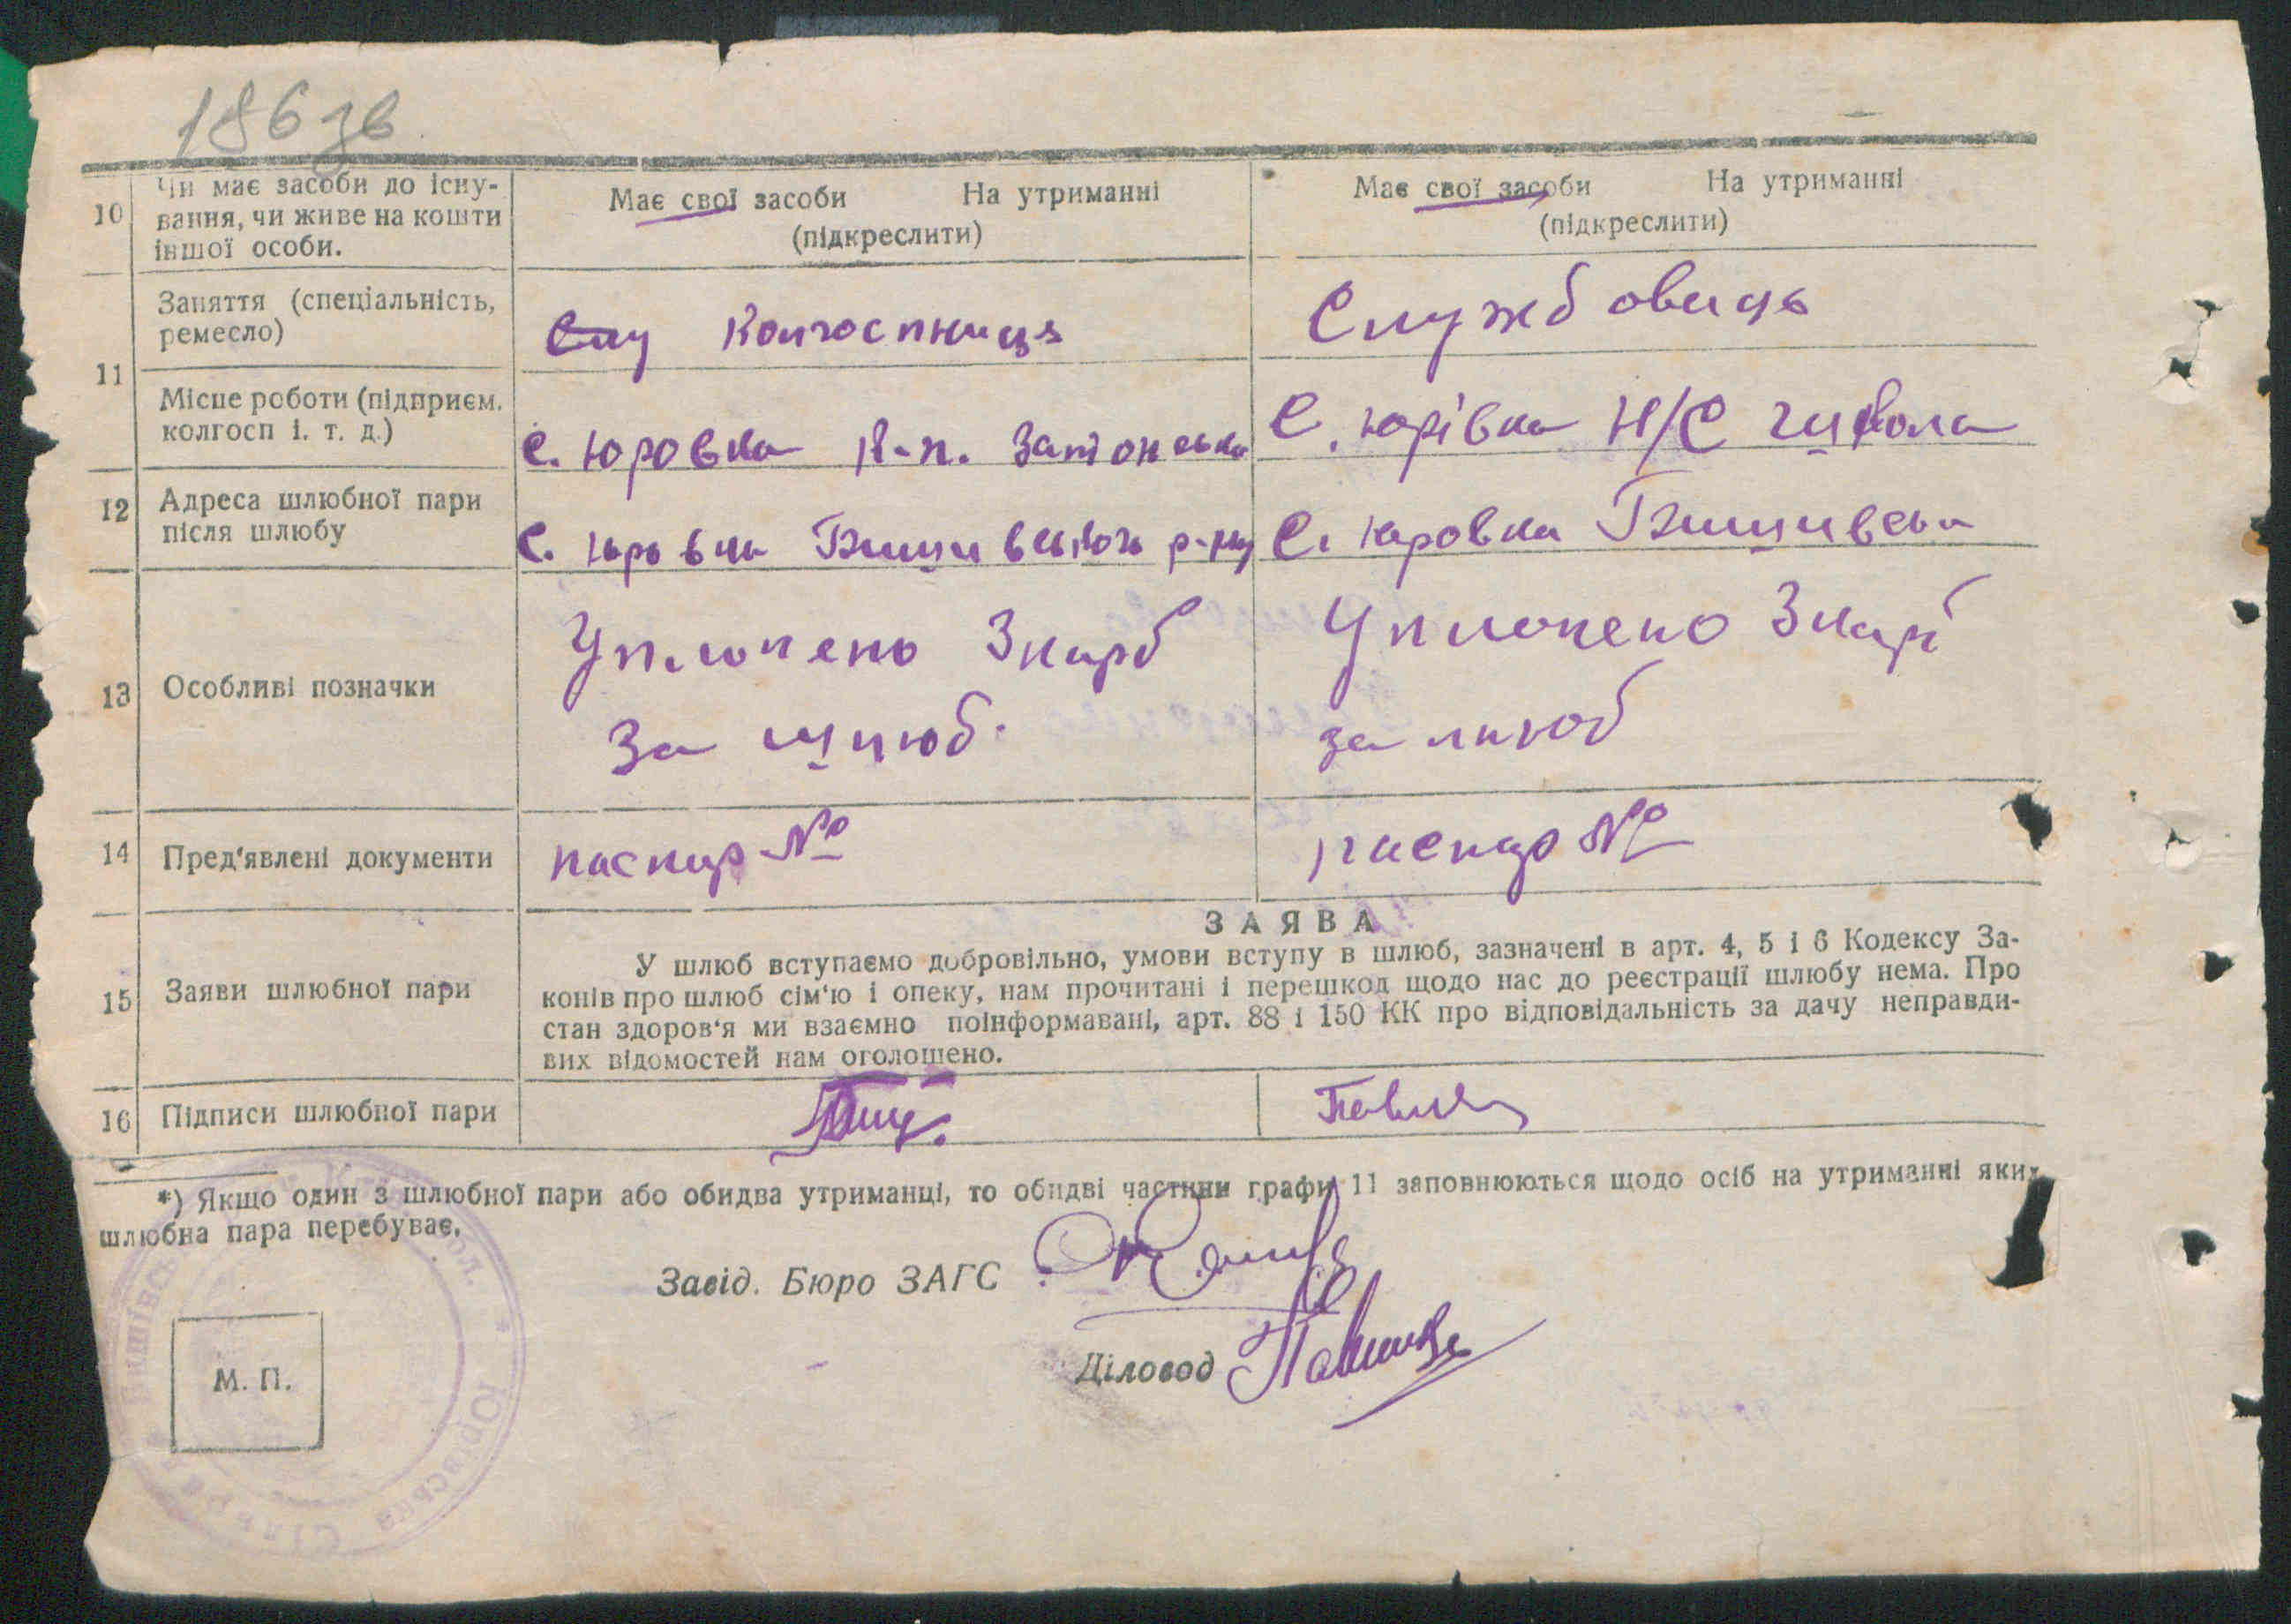 186 зв
10
Чи має засоби до існу-
вання, чи живе на кошти
іншої особи.
Має свої засоби На утриманні
(підкреслити)
Має свої засоби На утриманні
(підкреслити)
11
Заняття (спеціальність,
ремесло)
Колгоспниця
Службовець
Місце роботи (підприєм.
колгосп і. т. д.)
с. Юровка к-п. Затонська
С. Юрівка Н/С школа
12
Адреса шлюбної пари
після шлюбу
с. Юровка Бишивського р-ну
С. Юровка Бишивська
13
Особливі позначки
Уплочено Зкарб
За шлюб.
Уплочено Зкарб
за люоб
14
Пред'явлені документи
паспор №
паспор №
ЗАЯВА
15
Заяви шлюбної пари
У шлюб вступаємо добровільно, умови вступу в шлюб, зазначені в арт. 4, 5 і 6 Кодексу За-
конів про шлюб сім'ю і опеку, нам прочитані і перешкод щодо нас до реєстрації шлюбу нема. Про
стан здоров'я ми взаємно поінформавані, арт. 88 і 150 КК про відповідальність за дачу неправди-
вих відомостей нам оголошено.
16
Підписи шлюбної пари
*) Якщо один з шлюбної пари або обидва утриманці, то обидві частини графи 11 заповнюються щодо осіб на утриманні яких
шлюбна пара перебуває.
Завід. Бюро ЗАГС
Діловод
М. П.
Юрівська Сільрада